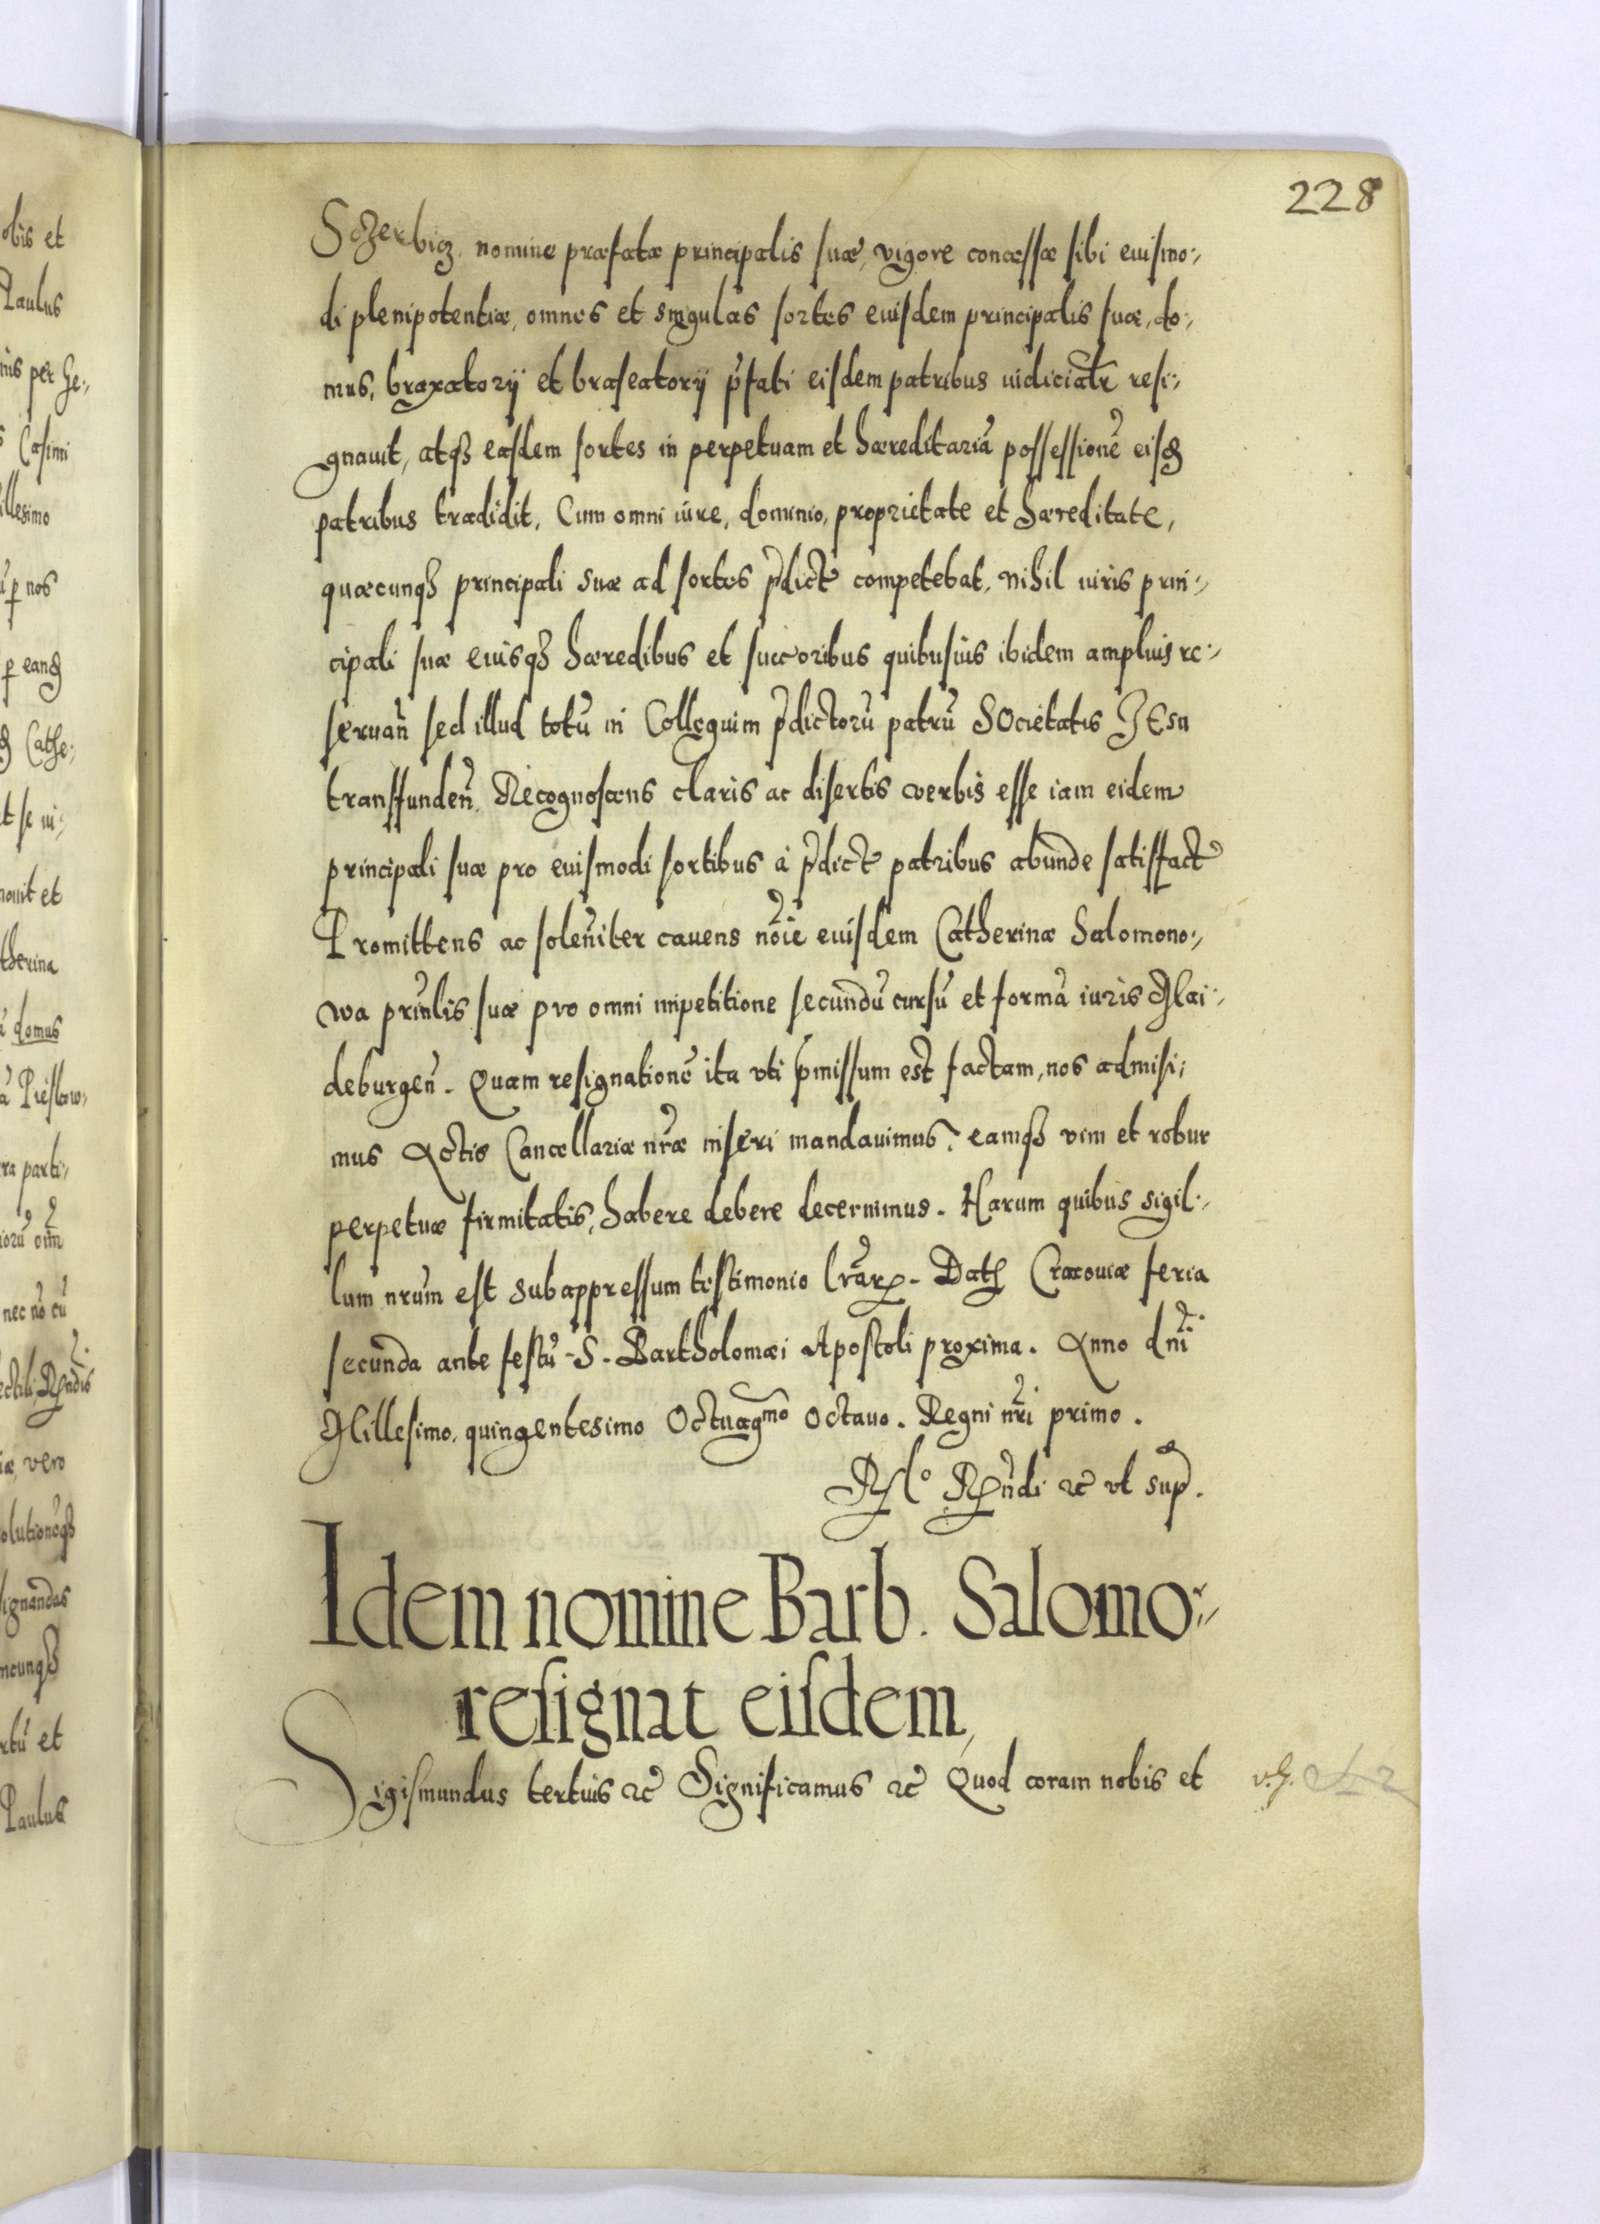 228
Sczerbicz, nomine præfatæ principalis suæ, vigore concessæ sibi euismo:,
di plenipotentiæ, omnes et singulas sortes eiusdem principalis suæ, do:,
mus, braxatorij et braseatorij p̃fati eisdem patribus iudicialr̃ resi:,
gnauit, atq₃ easdem sortes in perpetuam et hæreditariã possessionẽ eisd
patribus tradidit, Cum omni iure, dominio, proprietate et hæreditate,
quæcunq₃ principali suæ ad sortes p̃dict competebat, nihil iuris prin:,
cipali suæ eiusq₃ hæredibus et succoribus quibusuis ibidem amplius re:,
seruañ sed illud totũ in Collegium p̃dictorũ patrũ SOcietatis JEsu
transfundeñ. Recognoscens claris ac disertis verbis esse iam eidem
principali suæ pro euismodi sortibus à p̃dict patribus abunde satisfact
Promittens ac soleñiter cauens nõie eiusdem Catherinæ Salomono:,
wa prinlis suæ pro omni impetitione secundũ cursũ et formã iuris Mai:,
deburgeñ. Quam resignationẽ ita vti p̃missum est factam, nos admisi:,
mus Actis Cancellariæ nr̃æ inseri mandauimus, eamq₃ vim et robur
perpetuæ firmitatis, habere debere decernimus. Harum quibus sigil:,
lum nrũm est subappressum testimonio lr̃arꝝ. Dath Cracouiæ feria
secunda ante festũ S. Bartholomæi Apostoli proxima. Anno dñi
Millesimo, quingentesimo Octuagmo octauo. Regni nr̃i primo.
Rlo Rñdi ꝛc vt sup.
Idem nomine Barb. Salomo:,
resignat eisdem,
Sigismundus tertius ꝛc Significamus ꝛc Quod coram nobis et